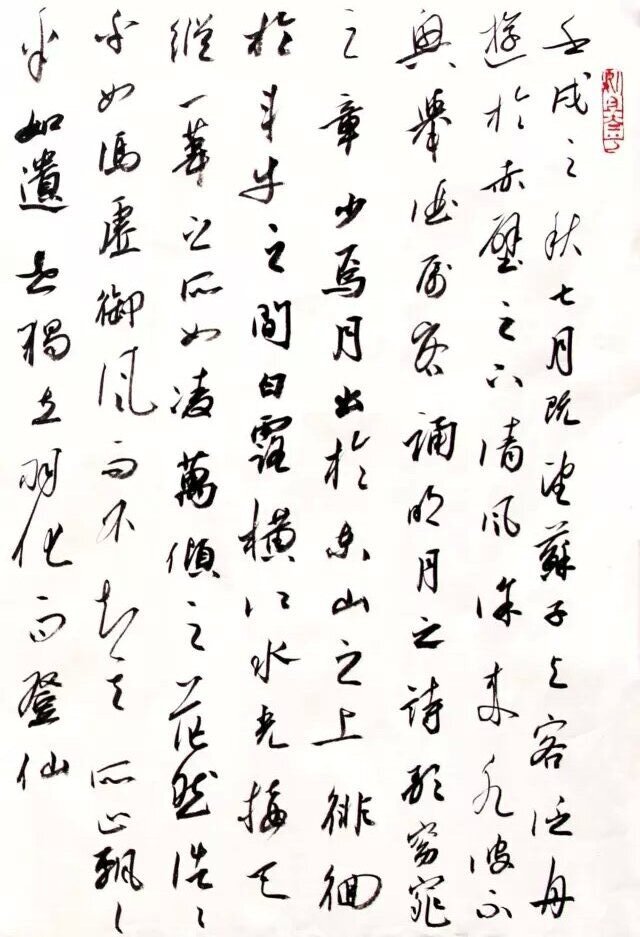 壬戌之秋七月既望蘇子与客泛舟
遊於赤壁之下清風徐来水波不
興舉酒属客誦明月之詩歌窈窕
之章少焉月出於東山之上徘徊
於斗牛之間白露橫江水光接天
縱一葦之所如凌萬傾之茫然浩〻
乎如馮虛御風而不知其所止飄〻
乎如遺世獨立羽化而登仙